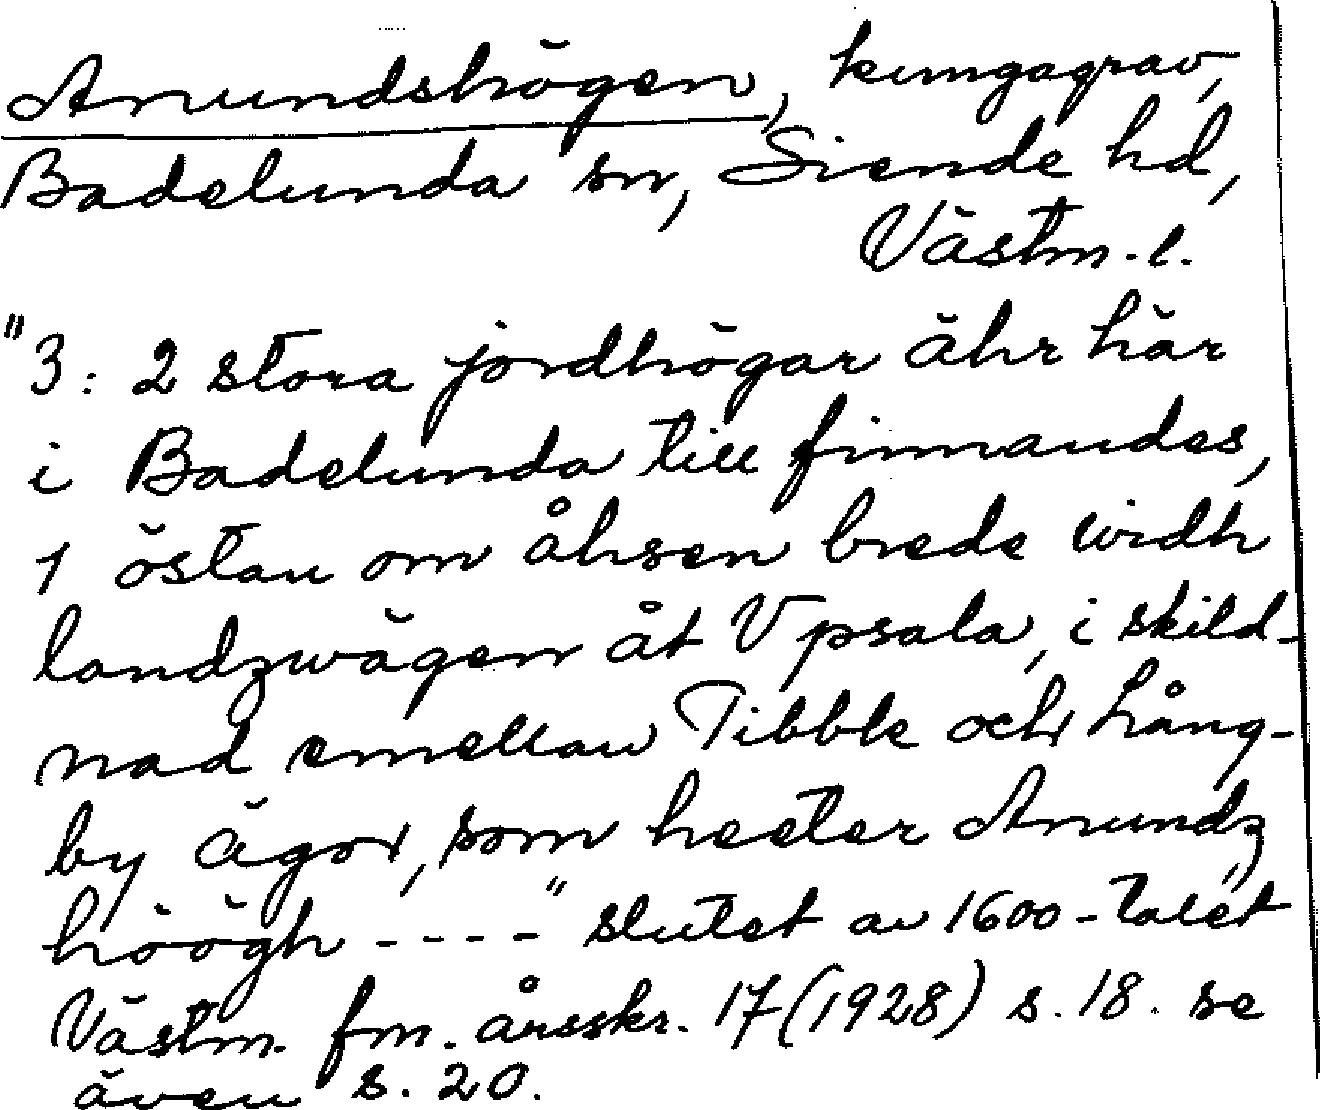 Anundshögen, kungagrav,
Badelunda sn, Siende hd,
Västm. l.
"3: 2 stora jordhögar ähr här
i Badelunda till finnandes,
1 östan om åhsen brede widh
landzwägen åt Vpsala, i skild-
nad emellan Tibble och Långby
by ägor, som heeter Anundz
höögh - - - -" slutet av 1600-talet
Västm. fm. årsskr. 17 (1928) s. 18. se
även s. 20.